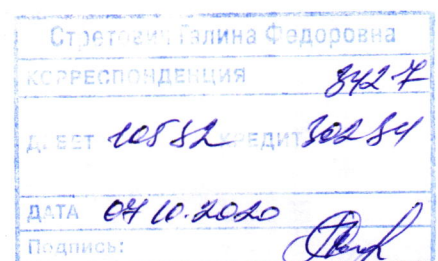 Галина Федоровна
КОРРЕСПОНДЕНЦИЯ 8427
ДЕБЕТ 10582 КРЕДИТ 30284
ДАТА 07.10.2020
Подпись: